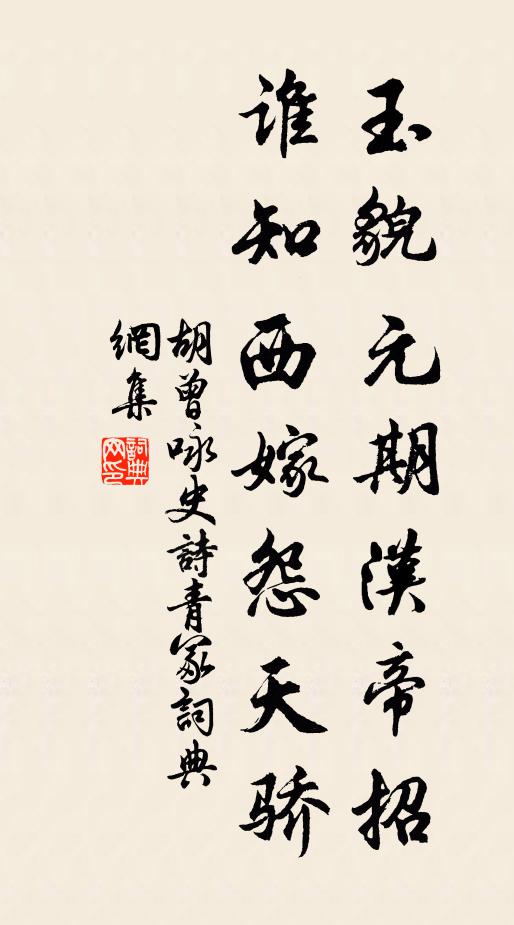 玉貌元期漢帝招
谁知西嫁怨天骄
胡曾咏史詩青冢詞典
網集
詞典网印